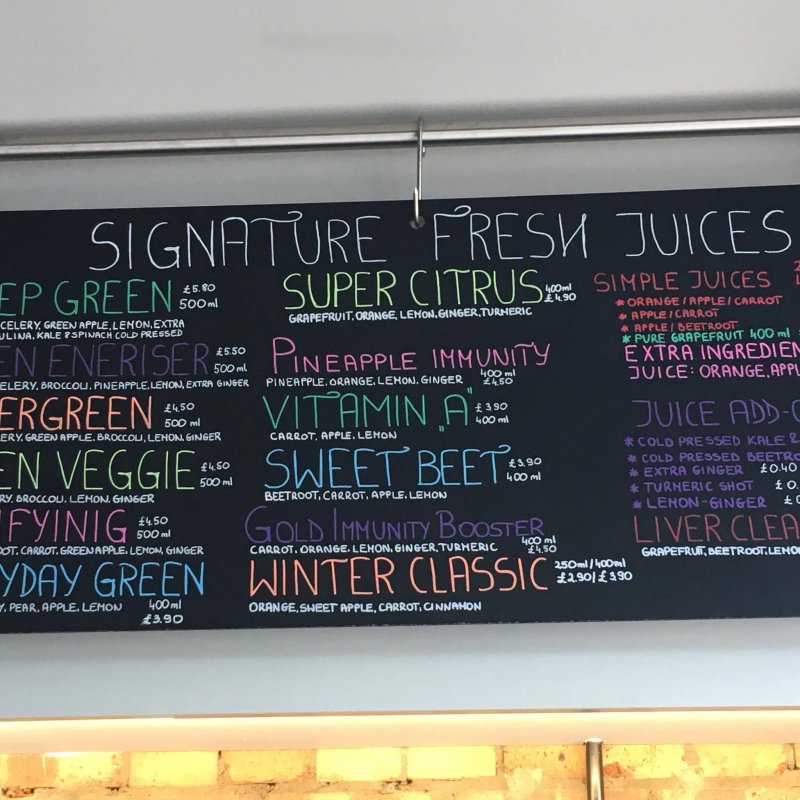 SIGNATURE FRESH JUICES
EP GREEN £5.80
500ml
CELERY, GREEN APPLE, LEMON, EXTRA
ULINA, KALE & SPINACH COLD PRESSED
EN ENERISER £5.50
500 ml
ELERY, BROCCOLI, PINEAPPLE, LEMON, EXTRA GINGER
ERGREEN £4.50
500 ml
ERY, GREEN APPLE, BROCCOLI, LEMON, GINGER
EN VEGGIE £4.50
500 ml
RY, BROCCOLI, LEMON, GINGER
IFYINIG £4.50
500 ml
OOT, CARROT, GREEN APPLE, LEMON, GINGER
YDAY GREEN
Y, PEAR, APPLE, LEMON 400 ml
£3.90
SUPER CITRUS 400ml
£4.90
GRAPEFRUIT, ORANGE, LEMON, GINGER, TURMERIC
PINEAPPLE IMMUNITY
PINEAPPLE, ORANGE, LEMON, GINGER 400 ml
£4.50
VITAMIN „A" £3.90
400 ml
CARROT, APPLE, LEMON
SWEET BEET £3.90
400 ml
BEETROOT, CARROT, APPLE, LEMON
GOLD IMMUNITY BOOSTER
CARROT, ORANGE, LEMON, GINGER, TURMERIC 400 ml
£4.50
WINTER CLASSIC 250ml/400ml
£2.90/£3.90
ORANGE, SWEET APPLE, CARROT, CINNAMON
SIMPLE JUICES
* ORANGE/APPLE/CARROT
* APPLE/CARROT
* APPLE/BEETROOT
* PURE GRAPEFRUIT 400 ml
EXTRA INGREDIEN
JUICE: ORANGE, APPL
JUICE ADD-O
* COLD PRESSED KALE &
* COLD PRESSED BEETRO
* EXTRA GINGER £0.40
* TURMERIC SHOT £0.
* LEMON-GINGER £0
LIVER CLEA
GRAPEFRUIT, BEETROOT, LEMO